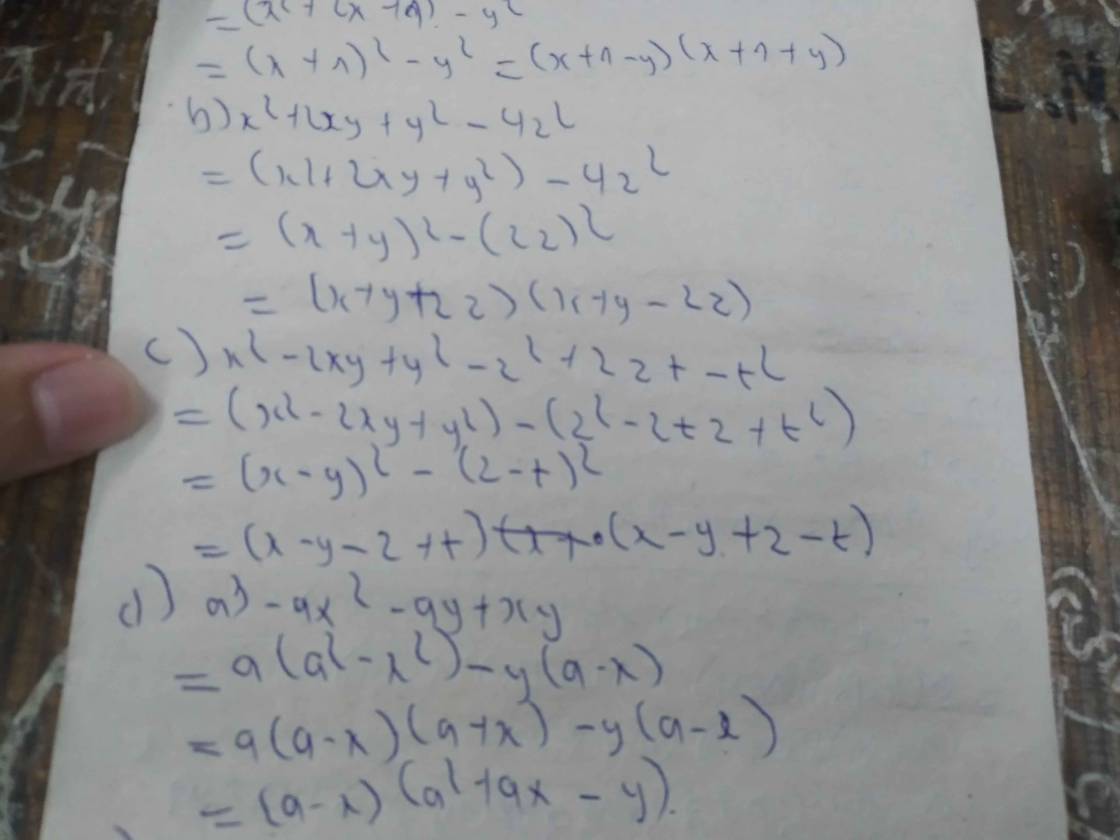 = (x² + 2x + 1) - y²
= (x + 1)² - y² = (x + 1 - y)(x + 1 + y)
b) x² + 2xy + y² - 4z²
= (x² + 2xy + y²) - 4z²
= (x + y)² - (2z)²
= (x + y + 2z)(x + y - 2z)
c) x² - 2xy + y² - z² + 2zt - t²
= (x² - 2xy + y²) - (z² - 2tz + t²)
= (x - y)² - (z - t)²
= (x - y - z + t) (x - y + z - t)
d) a³ - ax² - ay + xy
= a(a² - x²) - y(a - x)
= a(a - x)(a + x) - y(a - x)
= (a - x)(a² + ax - y).